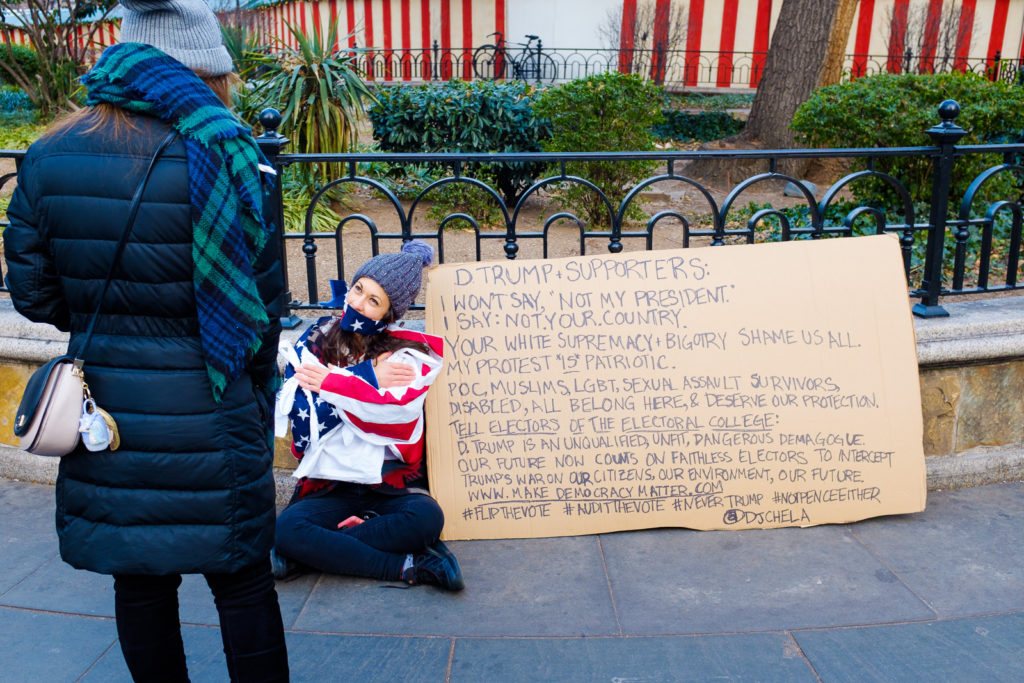 D. TRUMP + SUPPORTERS:
I WON'T SAY, "NOT MY PRESIDENT."
I SAY: NOT YOUR COUNTRY.
YOUR WHITE SUPREMACY + BIGOTRY SHAME US ALL.
MY PROTEST *IS* PATRIOTIC.
POC, MUSLIMS, LGBT, SEXUAL ASSAULT SURVIVORS,
DISABLED, ALL BELONG HERE, & DESERVE OUR PROTECTION.
TELL ELECTORS OF THE ELECTORAL COLLEGE:
D. TRUMP IS AN UNQUALIFIED, UNFIT, DANGEROUS DEMAGOGUE.
OUR FUTURE NOW COUNTS ON FAITHLESS ELECTORS TO INTERCEPT
TRUMP'S WAR ON OUR CITIZENS, OUR ENVIRONMENT, OUR FUTURE.
WWW.MAKE DEMOCRACY MATTER.COM
#FLIPTHEVOTE #AUDITTHEVOTE #NEVER TRUMP #NOTPENCEEITHER
@DJCHELA